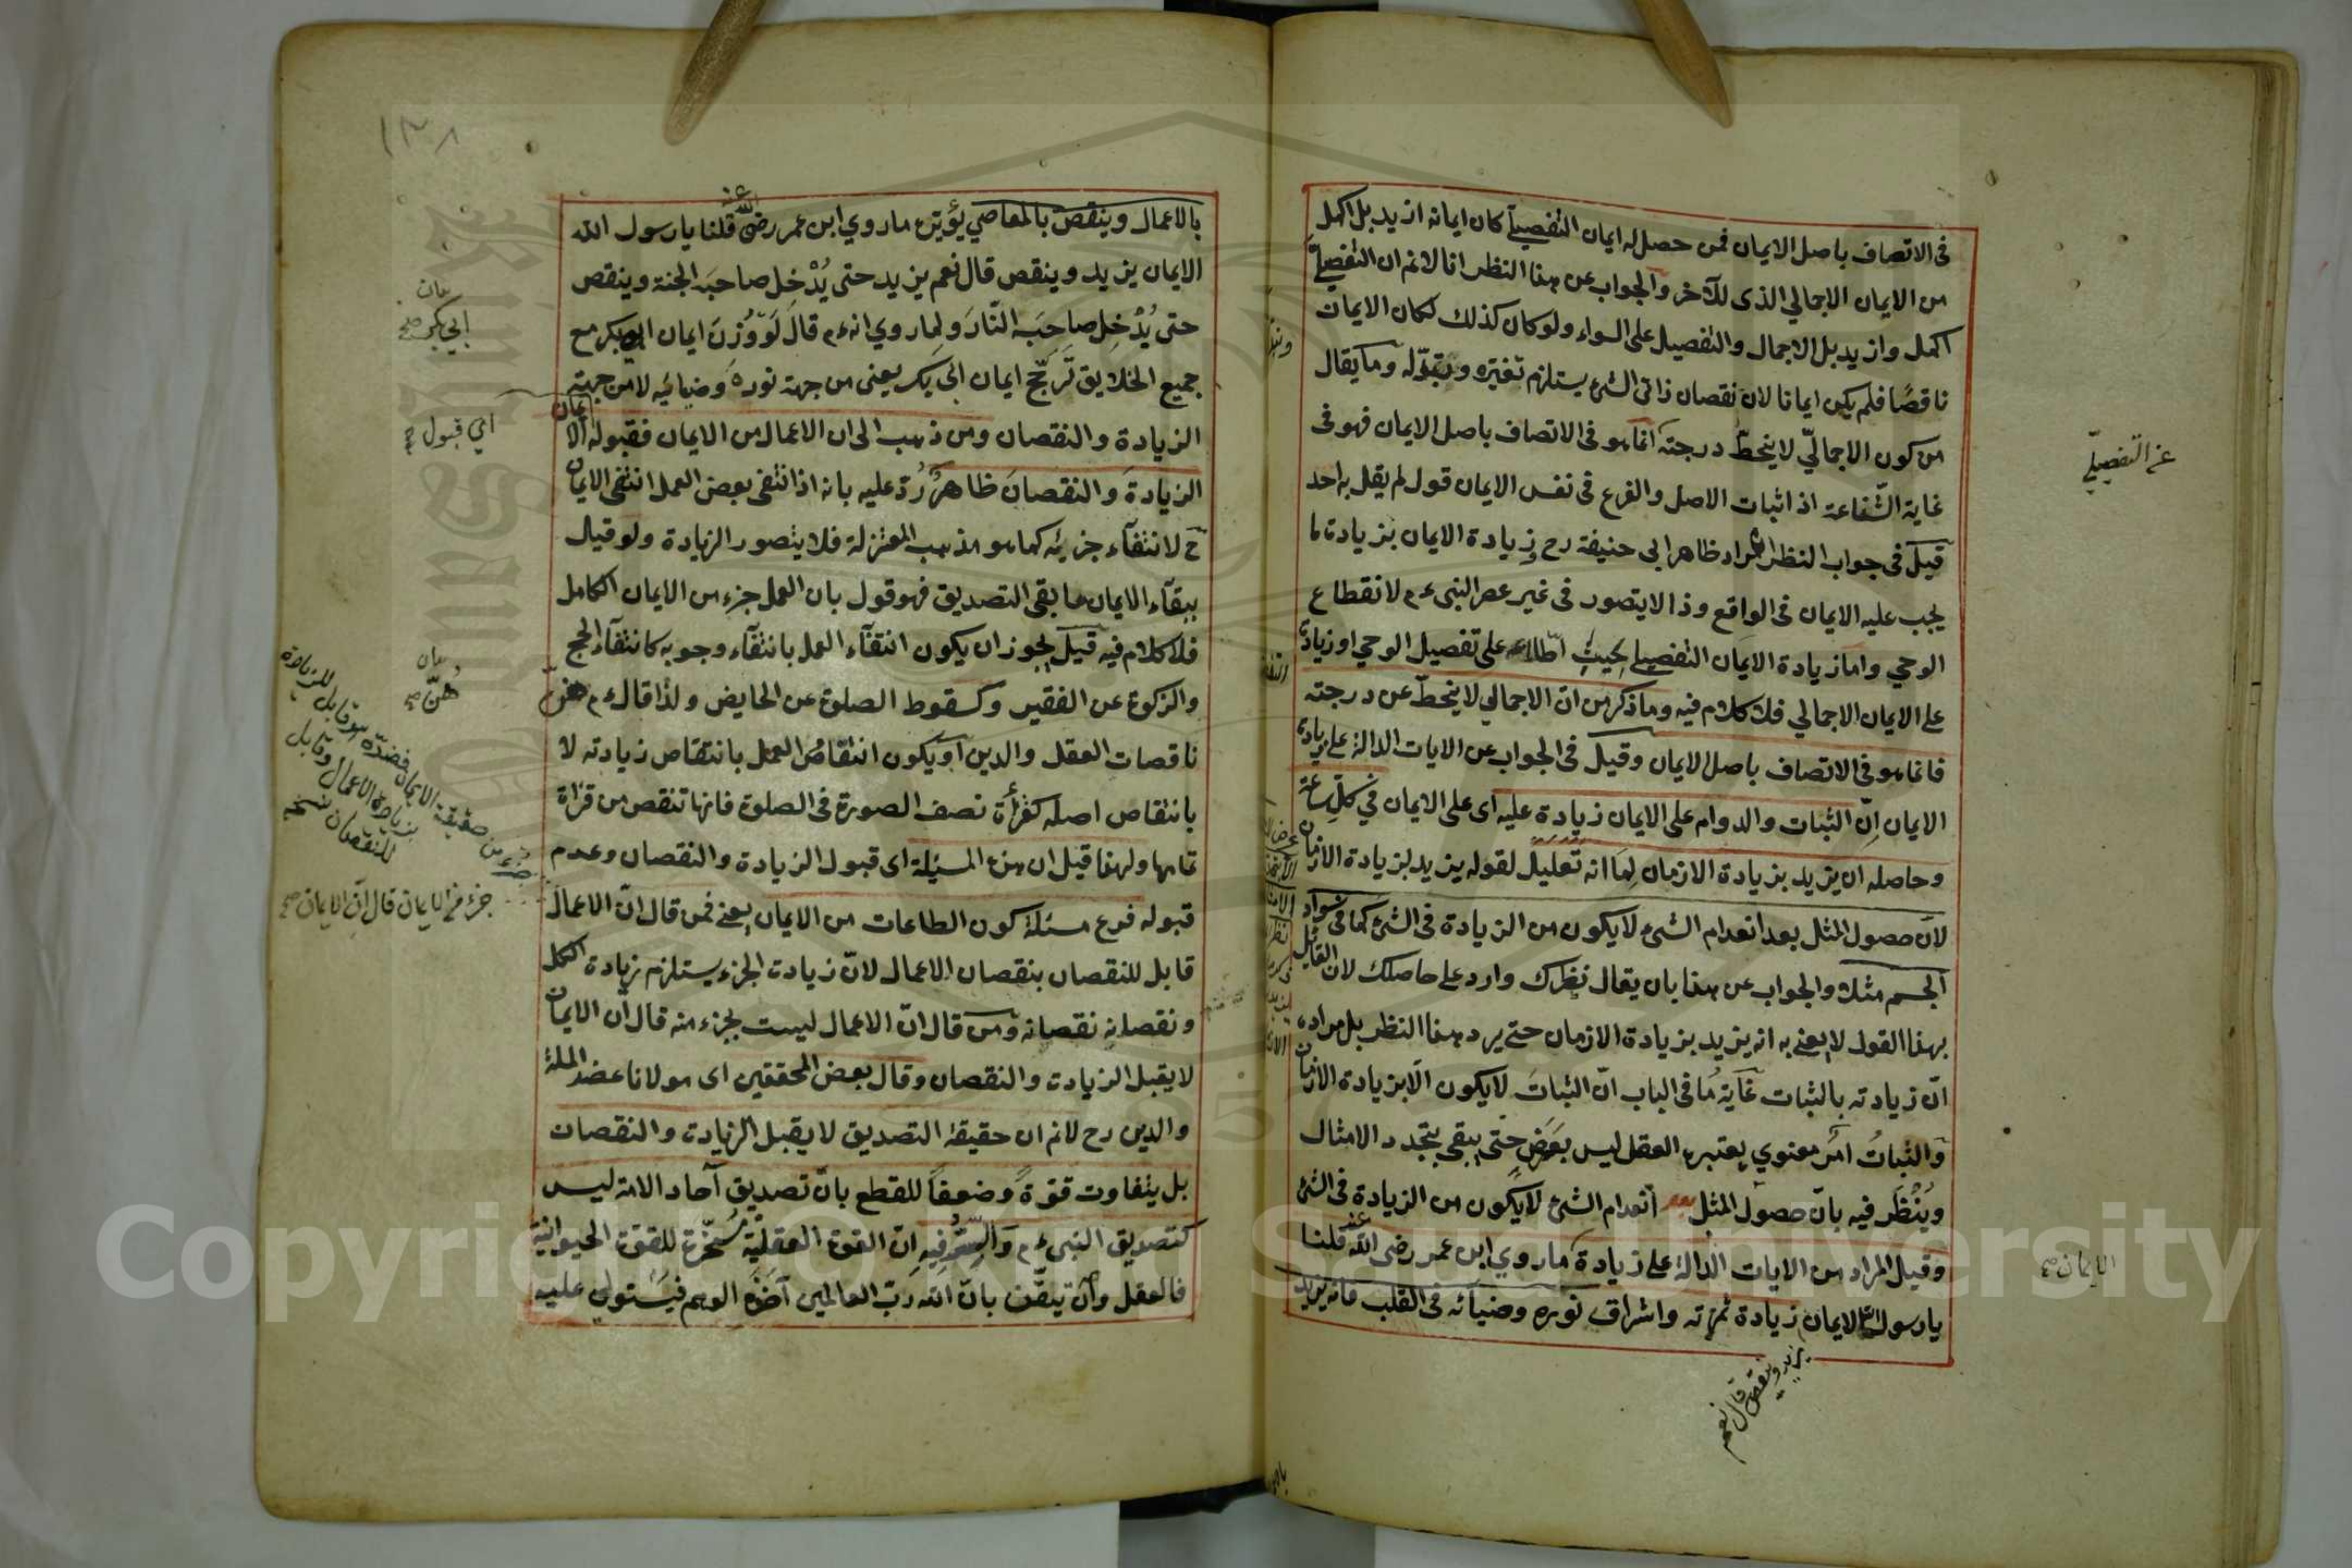 فى الاتصاف باصل الايمان فمن حصل له ايمان التفصيلى كان ايمانه ازيد بل اكمل
من الايمان الاجمالي الذى للآخر والجواب عن هذا النظر انا لا نم ان التفصيلى
اكمل وازيد بل الاجمال والتفصيل على السواء ولو كان كذلك لكان الايمان
ناقصًا فلم يكن ايمانا لان نقصان ذاتى الشئ يستلزم تغيّره وتبدّله وما يقال
من كون الاجماليّ لا ينحطّ درجته انما هو فى الاتصاف باصل الايمان فهو فى
غاية الشّفاعة اذ اثبات الاصل والفرع فى نفس الايمان قول لم يقل به احد
قيل فى جواب النظر المراد ظاهر ابى حنيفة رح زيادة الايمان بزيادة ما
يجب عليه الايمان فى الواقع وذا لا يتصور فى غير عصر النبى ءم لانقطاع
الوحي واما زيادة الايمان التفصيلى بحيث اطلاعه على تفصيل الوحي او زيادة
على الايمان الاجمالي فلا كلام فيه وما ذكر من انّ الاجمالي لا ينحطّ عن درجته
فانما هو فى الاتصاف باصل الايمان وقيل فى الجواب عن الايات الدالة على زيادة
الايمان انّ الثبات والدوام على الايمان زيادة عليه اى على الايمان في كلّ ساعة
وحاصله ان يزيد بزيادة الازمان لِمَا انه تعليل لقوله يزيد بزيادة الازمان
لانّ حصول المثل بعد انعدام الشئ لا يكون من الزيادة فى الشئ كما فى سواد
الجسم مثلا والجواب عن هذا بان يقال نظرك وارد على حاصلك لان القايل
بهذا القول لا يعنى به انه يزيد بزيادة الازمان حتى يرد هذا النظر بل مراده
انّ زيادته بالثبات غاية ما فى الباب انّ الثبات لا يكون الّا بزيادة الازمان
والثباتُ امر معنوي يعتبره العقل ليس بعَرَض حتى يبقى بتجدد الامثال
ويُنْظَر فيه بانّ حصول المثل بعد انعدام الشئ لا يكون من الزيادة فى الشئ
وقيل المراد من الايات الدالة على زيادة ما روي ابن عمر رضى الله عنه قلنا
يا رسول الله الايمان زيادة ثمرته واشراق نوره وضيائه فى القلب فانه يزيد
يزيد وينقص قال نعم
عن التفصيليّ
الايمان صح
١٣٨
بالاعمال وينقص بالمعاصي يؤيّده ما روي ابن عمر رضى الله عنه قلنا يا رسول الله
الايمان يزيد وينقص قال نعم يزيد حتى يُدْخِل صاحبَه الجنة وينقص
حتى يُدْخِل صاحِبَه النّارَ ولما روي انه ءم قال لَوْ وُزِنَ ايمان ابو بكر مع
جميع الخلايق تَرَجّح ايمان ابى بكر يعنى من جهة نوره وضيائه لا من جهة
الزيادة والنقصان ومن ذهب الى ان الاعمال من الايمان فقبوله الا
ايمان
الزيادةَ والنقصانَ ظاهرٌ رُدّ عليه بانه اذا انتفى بعض العمل انتفى الايمان
ح لانتفآء جزئه كما هو مذهب المعتزلة فلا يتصور الزيادة ولو قيل
ببقآء الايمان ما بقى التصديق فهو قول بان العمل جزء من الايمان الكامل
فلا كلام فيه قيل يجوز ان يكون انتفآء العمل بانتفآء وجوبه كانتفآء الحج
والزكوة عن الفقير وكسقوط الصلوة عن الحايض ولذا قال ءم هنّ
ناقصات العقل والدين او يكون انتقاصُ العمل بانتقاص زيادته لا
بانتقاص اصله كقرأة نصف الصورة فى الصلوة فانها تنقص من قرأة
تمامها ولهذا قيل ان هذه المسئلة اى قبول الزيادة والنقصان وعدم
قبوله فرع مسئلة كون الطاعات من الايمان يعنى فمن قال انّ الاعمال
قابل للنقصان بنقصان الاعمال لانّ زيادة الجزء يستلزم زيادة الكل
ونقصانه نقصانه ومن قال انّ الاعمال ليست بجزء منه قال ان الايمان
لا يقبل الزيادة والنقصان وقال بعض المحققين اى مولانا عضد الملة
والدين رح لا نم ان حقيقة التصديق لا يقبل الزيادة والنقصان
بل يتفاوت قوّةً وضعفًا للقطع بانّ تصديق آحاد الامة ليس
كتصديق النبي ءم والسّرّ فيه انّ القوة العقليّة مُسَخّرة للقوة الحيوانية
فالعقل وان تيقّن بانّ الله ربّ العالمين اخذه الوهم فيستولى عليه
ابي بكر صح
اي قبول صح
هُنّ صح
جزء من حقيقة الايمان فضدّه هو قابل للزيادة
بزيادة الاعمال وقابل
للنقصان نسخه
جزء من الايمان قال انّ الايمان صح
Copyright © King Saud University